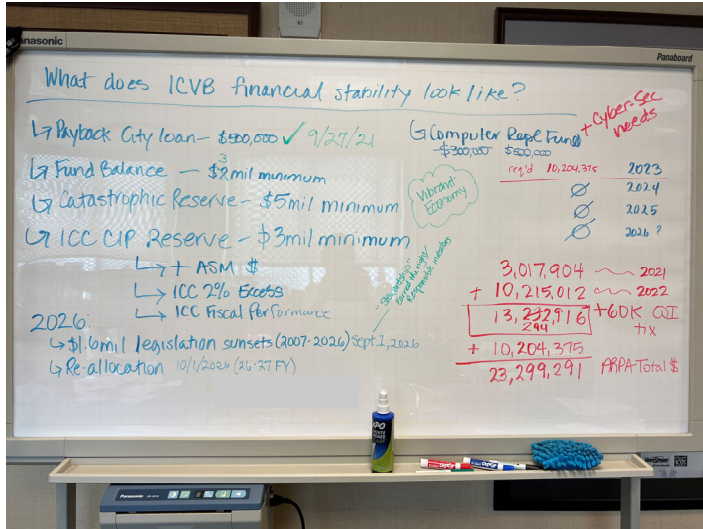 Panasonic
Panaboard
What does ICVB financial stability look like?
↳ Payback City loan - $500,000 ✓ 9/27/21
↳ Fund Balance - $2 3 mil minimum
↳ Catastrophic Reserve - $5mil minimum
↳ ICC CIP Reserve - $3mil minimum
↳ + ASM $
↳ ICC 2% Excess
↳ ICC Fiscal Performance
2026:
↳ $1.6mil legislation sunsets (2007-2026) Sept 1, 2026
↳ Re-allocation 10/1/2026 (26-27 FY)
Vibrant
Economy
Stewardship
Earned the right/
Responsible investors
↳ Computer Repl Fund
+ Cyber-Sec
needs
$300,000 $500,000
req'd 10,204,375 2023
∅ 2024
∅ 2025
∅ 2026 ?
3,017,904 2021
+ 10,215,012 2022
13,232,916 +60K CQI
294 tix
+ 10,204,375
23,299,291 ARPA Total $
EXPO
EXPO
EXPO
Panasonic